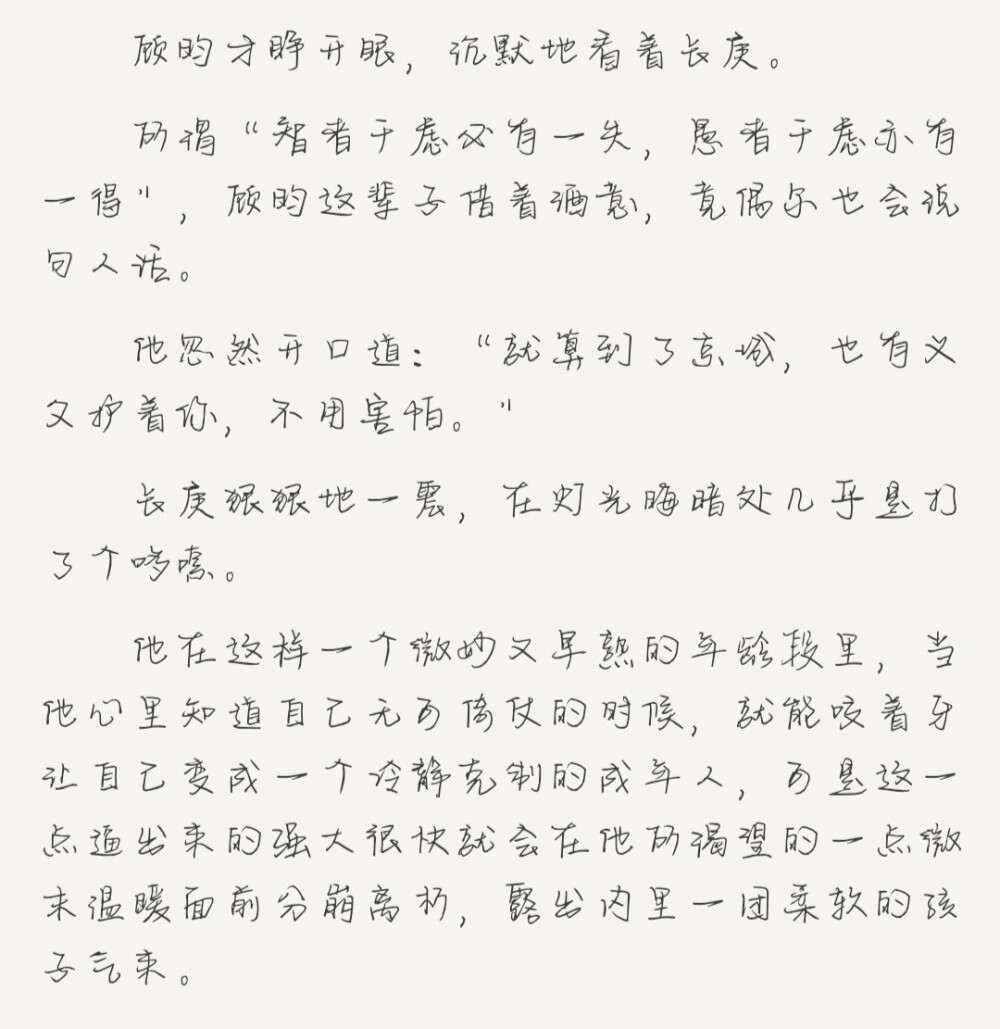 顾昀才睁开眼，沉默地看着长庚。
所谓“智者千虑必有一失，愚者千虑亦有
一得”，顾昀这辈子借着酒意，竟偶尔也会说
句人话。
他忽然开口道：“就算到了京城，也有义
父护着你，不用害怕。”
长庚狠狠地一震，在灯光晦暗处几乎是打
了个哆嗦。
他在这样一个微妙又早熟的年龄段里，当
他心里知道自己无可倚仗的时候，就能咬着牙
让自己变成一个冷静克制的成年人，可是这一
点逼出来的强大很快就会在他所渴望的一点微
末温暖面前分崩离析，露出内里一团柔软的孩
子气来。